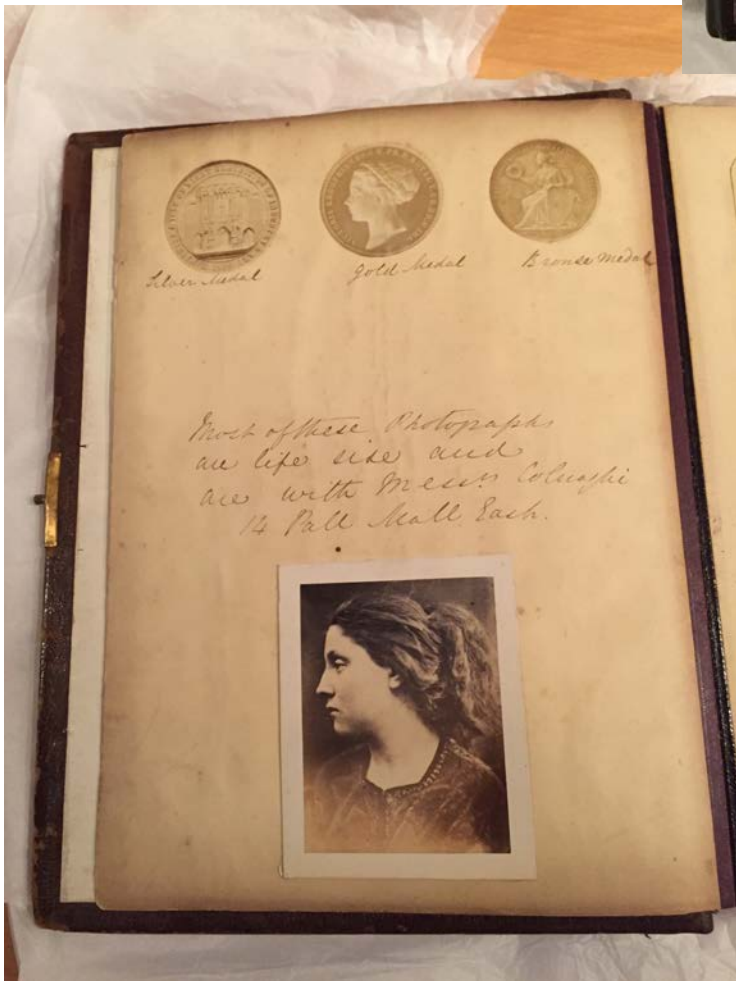 Silver Medal
Gold Medal
Bronse Medal
Most of these Photographs
are life size and
are with Messrs Colnaghi
14 Pall Mall East.